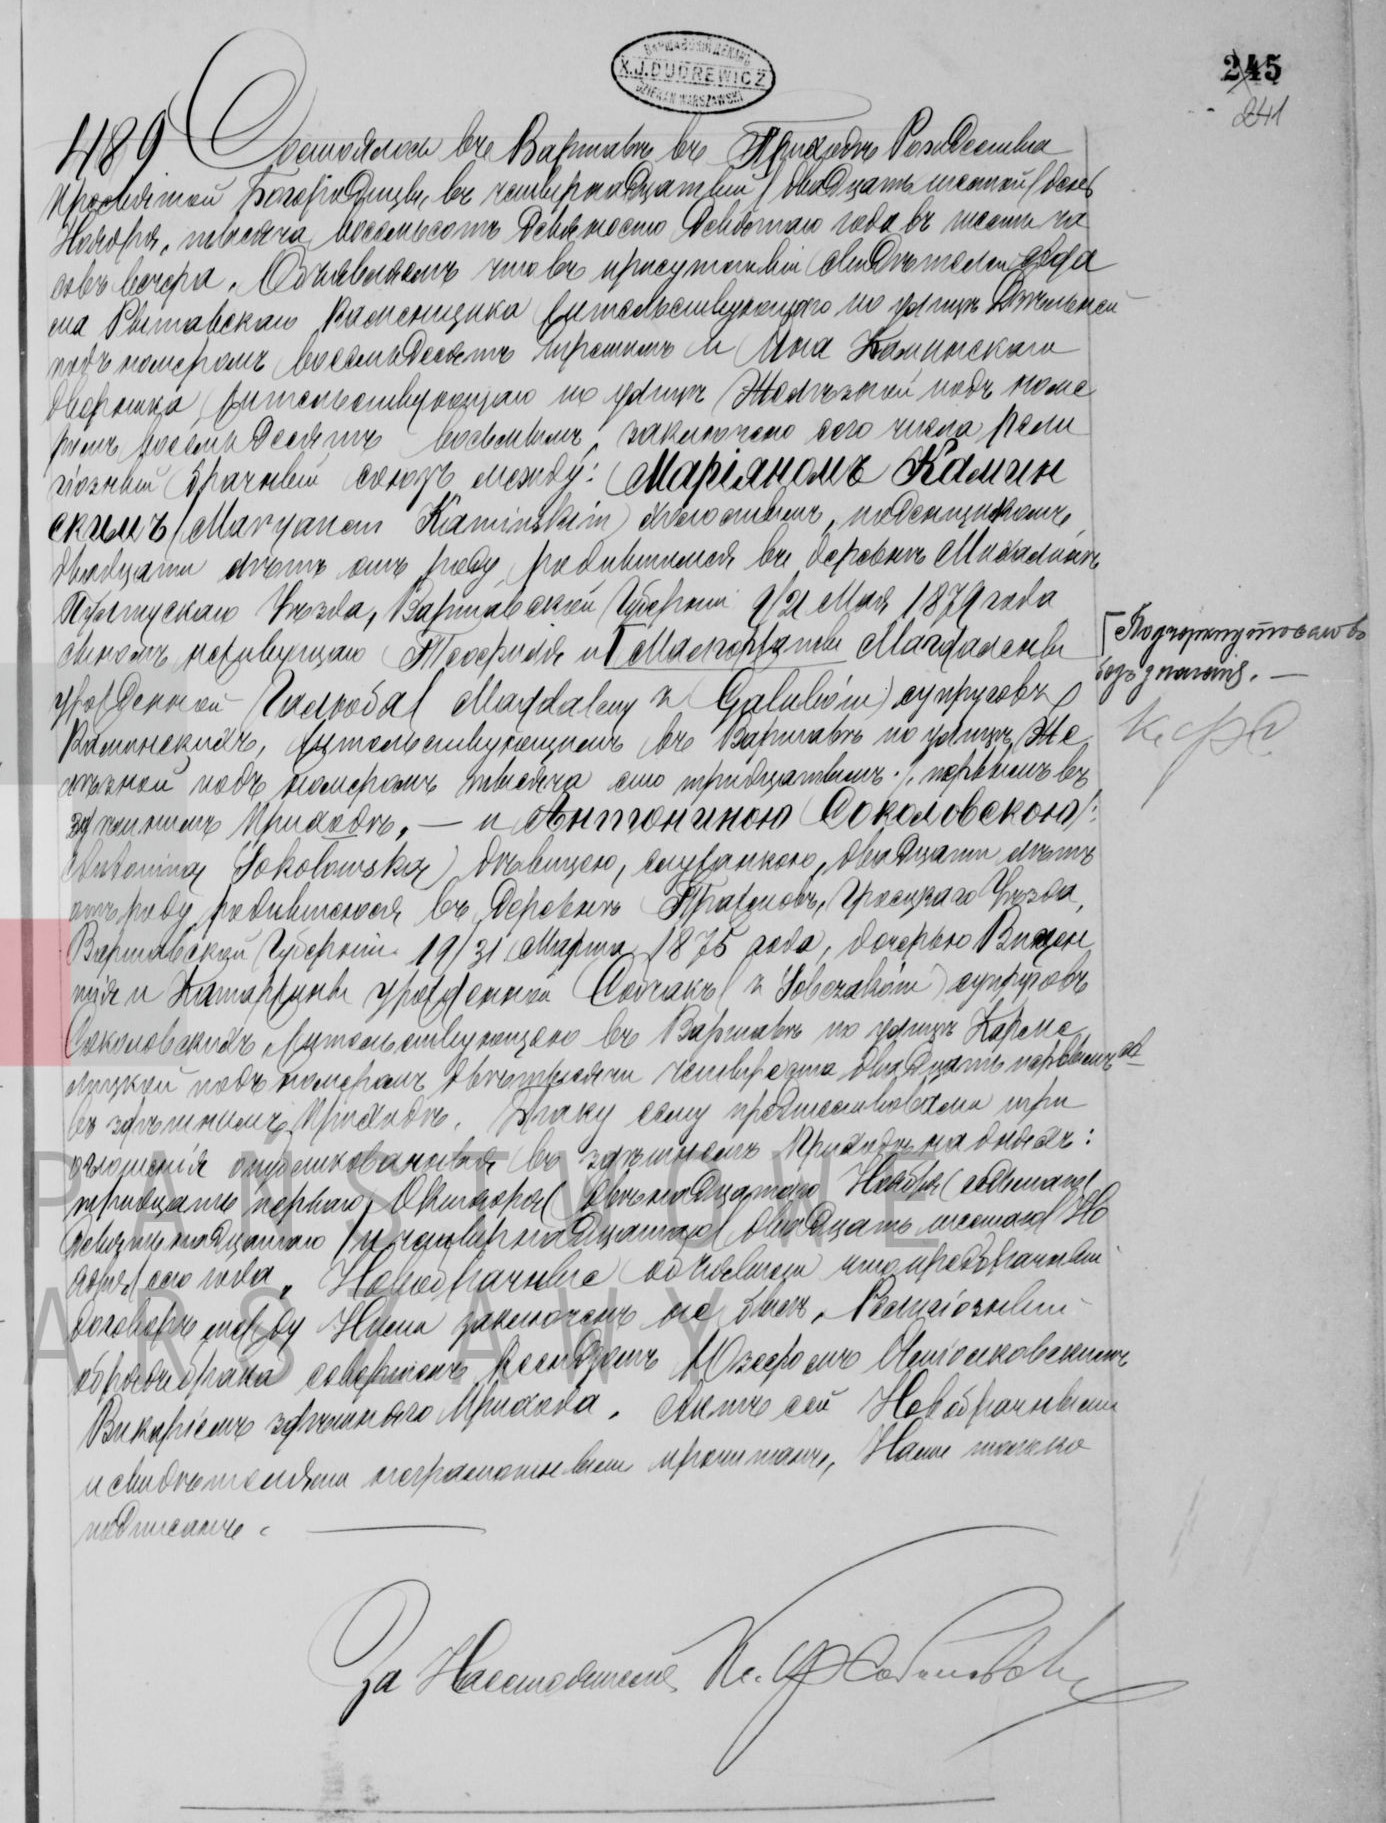 ВАРШАВСКІЙ ДЕКАНЪ
X.J.DUDREWICZ
DZIEKAN WARSZAWSKI
245
241
489 Состоялось въ Варшавѣ въ Приходѣ Рождества
Пресвятой Богородицы, въ четырнадцатый / двадцать шестой / день
Ноября, тысяча восемьсотъ девяносто девятаго года въ шесть ча
совъ вечера. Объявляемъ что въ присутствіи свидѣтелей
Каменщика жительствующаго по улицѣ
подъ номеромъ восемьдесятъ третьимъ и Яна Каминскаго
дворника, жительствующаго по улицѣ Желѣзной подъ номе
ромъ восемьдесятъ восьмымъ, заключено сего числа рели
гіозный брачный союзъ между: Маріяномъ Камин
скимъ (Maryanem Kamińskim) холостымъ, поденщикомъ,
двадцати лѣтъ отъ роду, родившимся въ деревнѣ
Пултускаго Уѣзда, Варшавской Губерніи 9/21 Мая 1879 года
сыномъ неживущаго Теофиля и Малгоржаты Магдалены
урожденной Галюба( Magdaleny z Galubów) супруговъ
Каминскихъ, жительствующимъ въ Варшавѣ по улицѣ Же
лѣзной подъ номеромъ тысяча сто тридцатымъ первымъ въ
здѣшнимъ Приходѣ, — и Антониною Соколовскою /:
Antonina Sokołowska) дѣвицею, служанкою, двадцати лѣтъ
отъ роду, родившеюся въ деревнѣ Гроецкаго Уѣзда,
Варшавской Губерніи 19/31 Марта 1875 года, дочерью Вицен
тія и Катаржины урожденной Собчакъ( z Sobczaków) супруговъ
Соколовскихъ, жительствующею въ Варшавѣ по улицѣ Карме
лицкой подъ номеромъ двѣ тысячи четыреста двадцать первымъ
въ здѣшнимъ Приходѣ. Браку сему предшествовали три
оглашенія опубликованныя въ здѣшнемъ Приходѣ на дняхъ:
тридцать перваго Октября( двѣнадцатаго Ноября( седьмаго(
девятнадцатаго / и четырнадцатаго( двадцать шестаго( Но
ября( сего года. Новобрачные объявили что предбрачный
договоръ между Ними заключенъ не былъ. Религіозный
обрядъ брака совершенъ Ксендзомъ Юзефомъ
Викаріемъ здѣшняго Прихода. Актъ сей Новобрачнымъ
и свидѣтелямъ неграмотнымъ прочитанъ, Нами только
подписанъ.
Г Подчеркнутое слово
безъ значенія. —
За Настоятеля Кс.